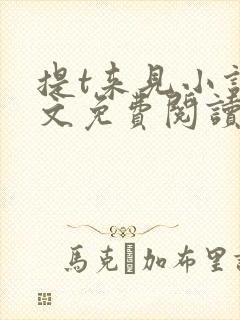 提t来见小
文免費閱讀
馬克 加布里